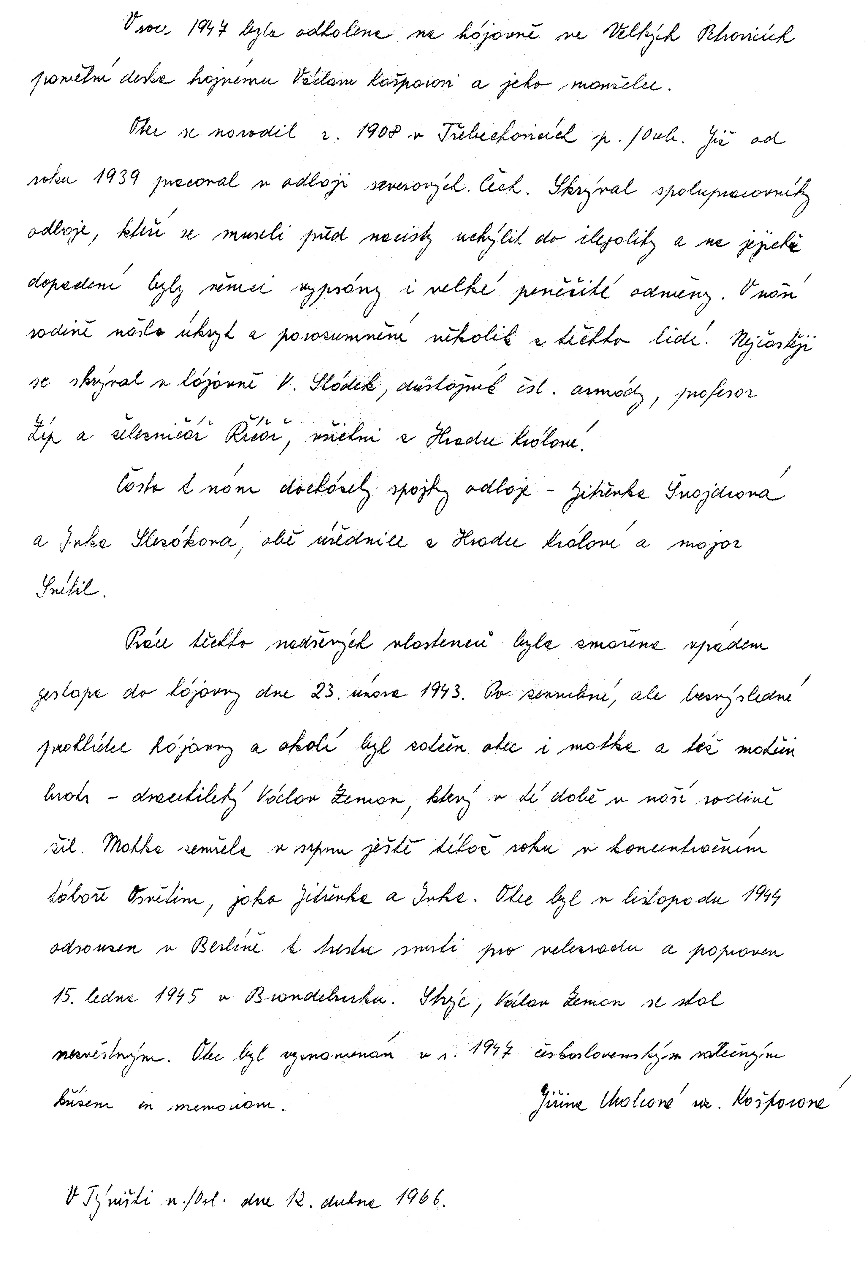 V roce 1947 byla odhalena na hájovně ve Velkých Petrovicích
pamětní deska hajnému Václavu Kašparovi a jeho manželce.
Otec se narodil r. 1908 v Třebechovicích p./Oreb. Již od
roku 1939 pracoval v odboji severových. Čech. Skrýval spolupracovníky
odboje, kteří se museli před nacisty uchýlit do ilegality a na jejichž
dopadení byly němci vypsány i velké peněžité odměny. V naší
rodině našlo úkryt a porozumnění několik z těchto lidí. Nejčastěji
se skrýval v hájovně V. Sládek, důstojník čsl. armády, profesor
Líp a železničář Řičář, všichni z Hradce Králové.
Často k nám docházely spojky odboje – Jitřenka Šnajdrová
a Inka Slezáková, obě úřednice z Hradce Králové a major
Snítil.
Práce těchto nadšených vlastenců byla zmařena vpádem
gestapa do hájovny dne 23. února 1943. Po zevrubné, ale bezvýsledné
prohlídce hájovny a okolí byl zatčen otec i matka a též matčin
bratr – dvacetiletý Václav Zeman, který v té době v naší rodině
žil. Matka zemřela v srpnu ještě téhož roku v koncentračním
táboře Osvětim, jako Jitřenka a Inka. Otec byl v listopadu 1944
odsouzen v Berlíně k trestu smrti pro velezradu a popraven
15. ledna 1945 v Brandeburku. Strýc, Václav Zeman se stal
nezvěstným. Otec byl vyznamenán v r. 1947 československým válečným
křížem in memoriam.
Jiřina roz. Kašparová
V Týništi n./Orl. dne 12. dubna 1966.